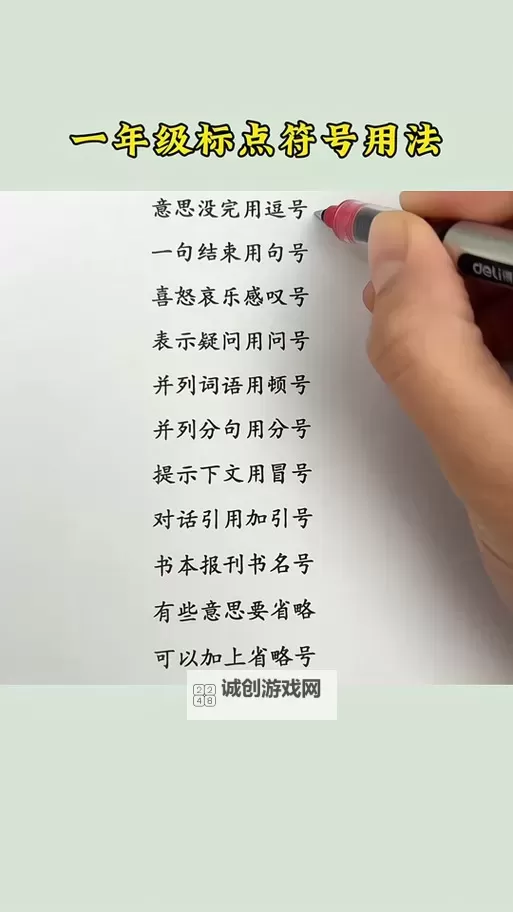 一年级标点符号用法
意思没完用逗号
一句结束用句号
喜怒哀乐感叹号
表示疑问用问号
并列词语用顿号
并列分句用分号
提示下文用冒号
对话引用加引号
书本报刊书名号
有些意思要省略
可以加上省略号
deli得
2248
诚创游戏网